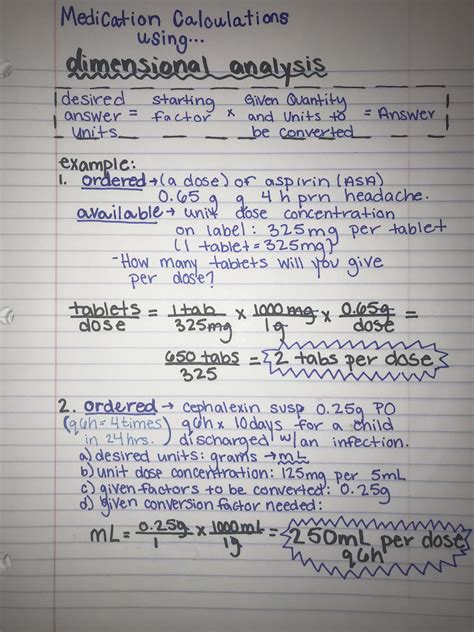 Medication Calculations
using...
dimensional analysis
desired answer units = starting factor × Given Quantity and Units to be converted = Answer
example:
1. ordered → (a dose) of aspirin (ASA)
0.65 g q 4 h prn headache.
available → unit dose concentration
on label: 325 mg per tablet
(1 tablet = 325mg)
- How many tablets will you give
per dose?
tablets/dose = 1 tab/325mg × 1000 mg/1g × 0.65g/dose =
650 tabs/325 = 2 tabs per dose
2. ordered → cephalexin susp 0.25g PO
(q6h = 4 times in 24 hrs.) q6h × 10 days for a child
discharged w/an infection.
a) desired units: grams → mL
b) unit dose concentration: 125mg per 5mL
c) given factors to be converted: 0.25g
d) given conversion factor needed:
mL = 0.25g/1 × 1000mL/1g = 250mL per dose
q6h